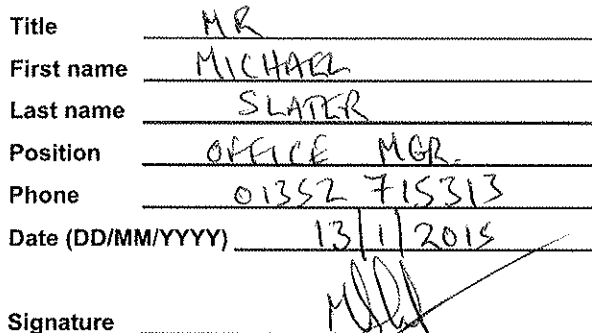 Title MR
First name MICHAEL
Last name SLATER
Position OFFICE MGR.
Phone 01352 715313
Date (DD/MM/YYYY) 13/1/2015
Signature